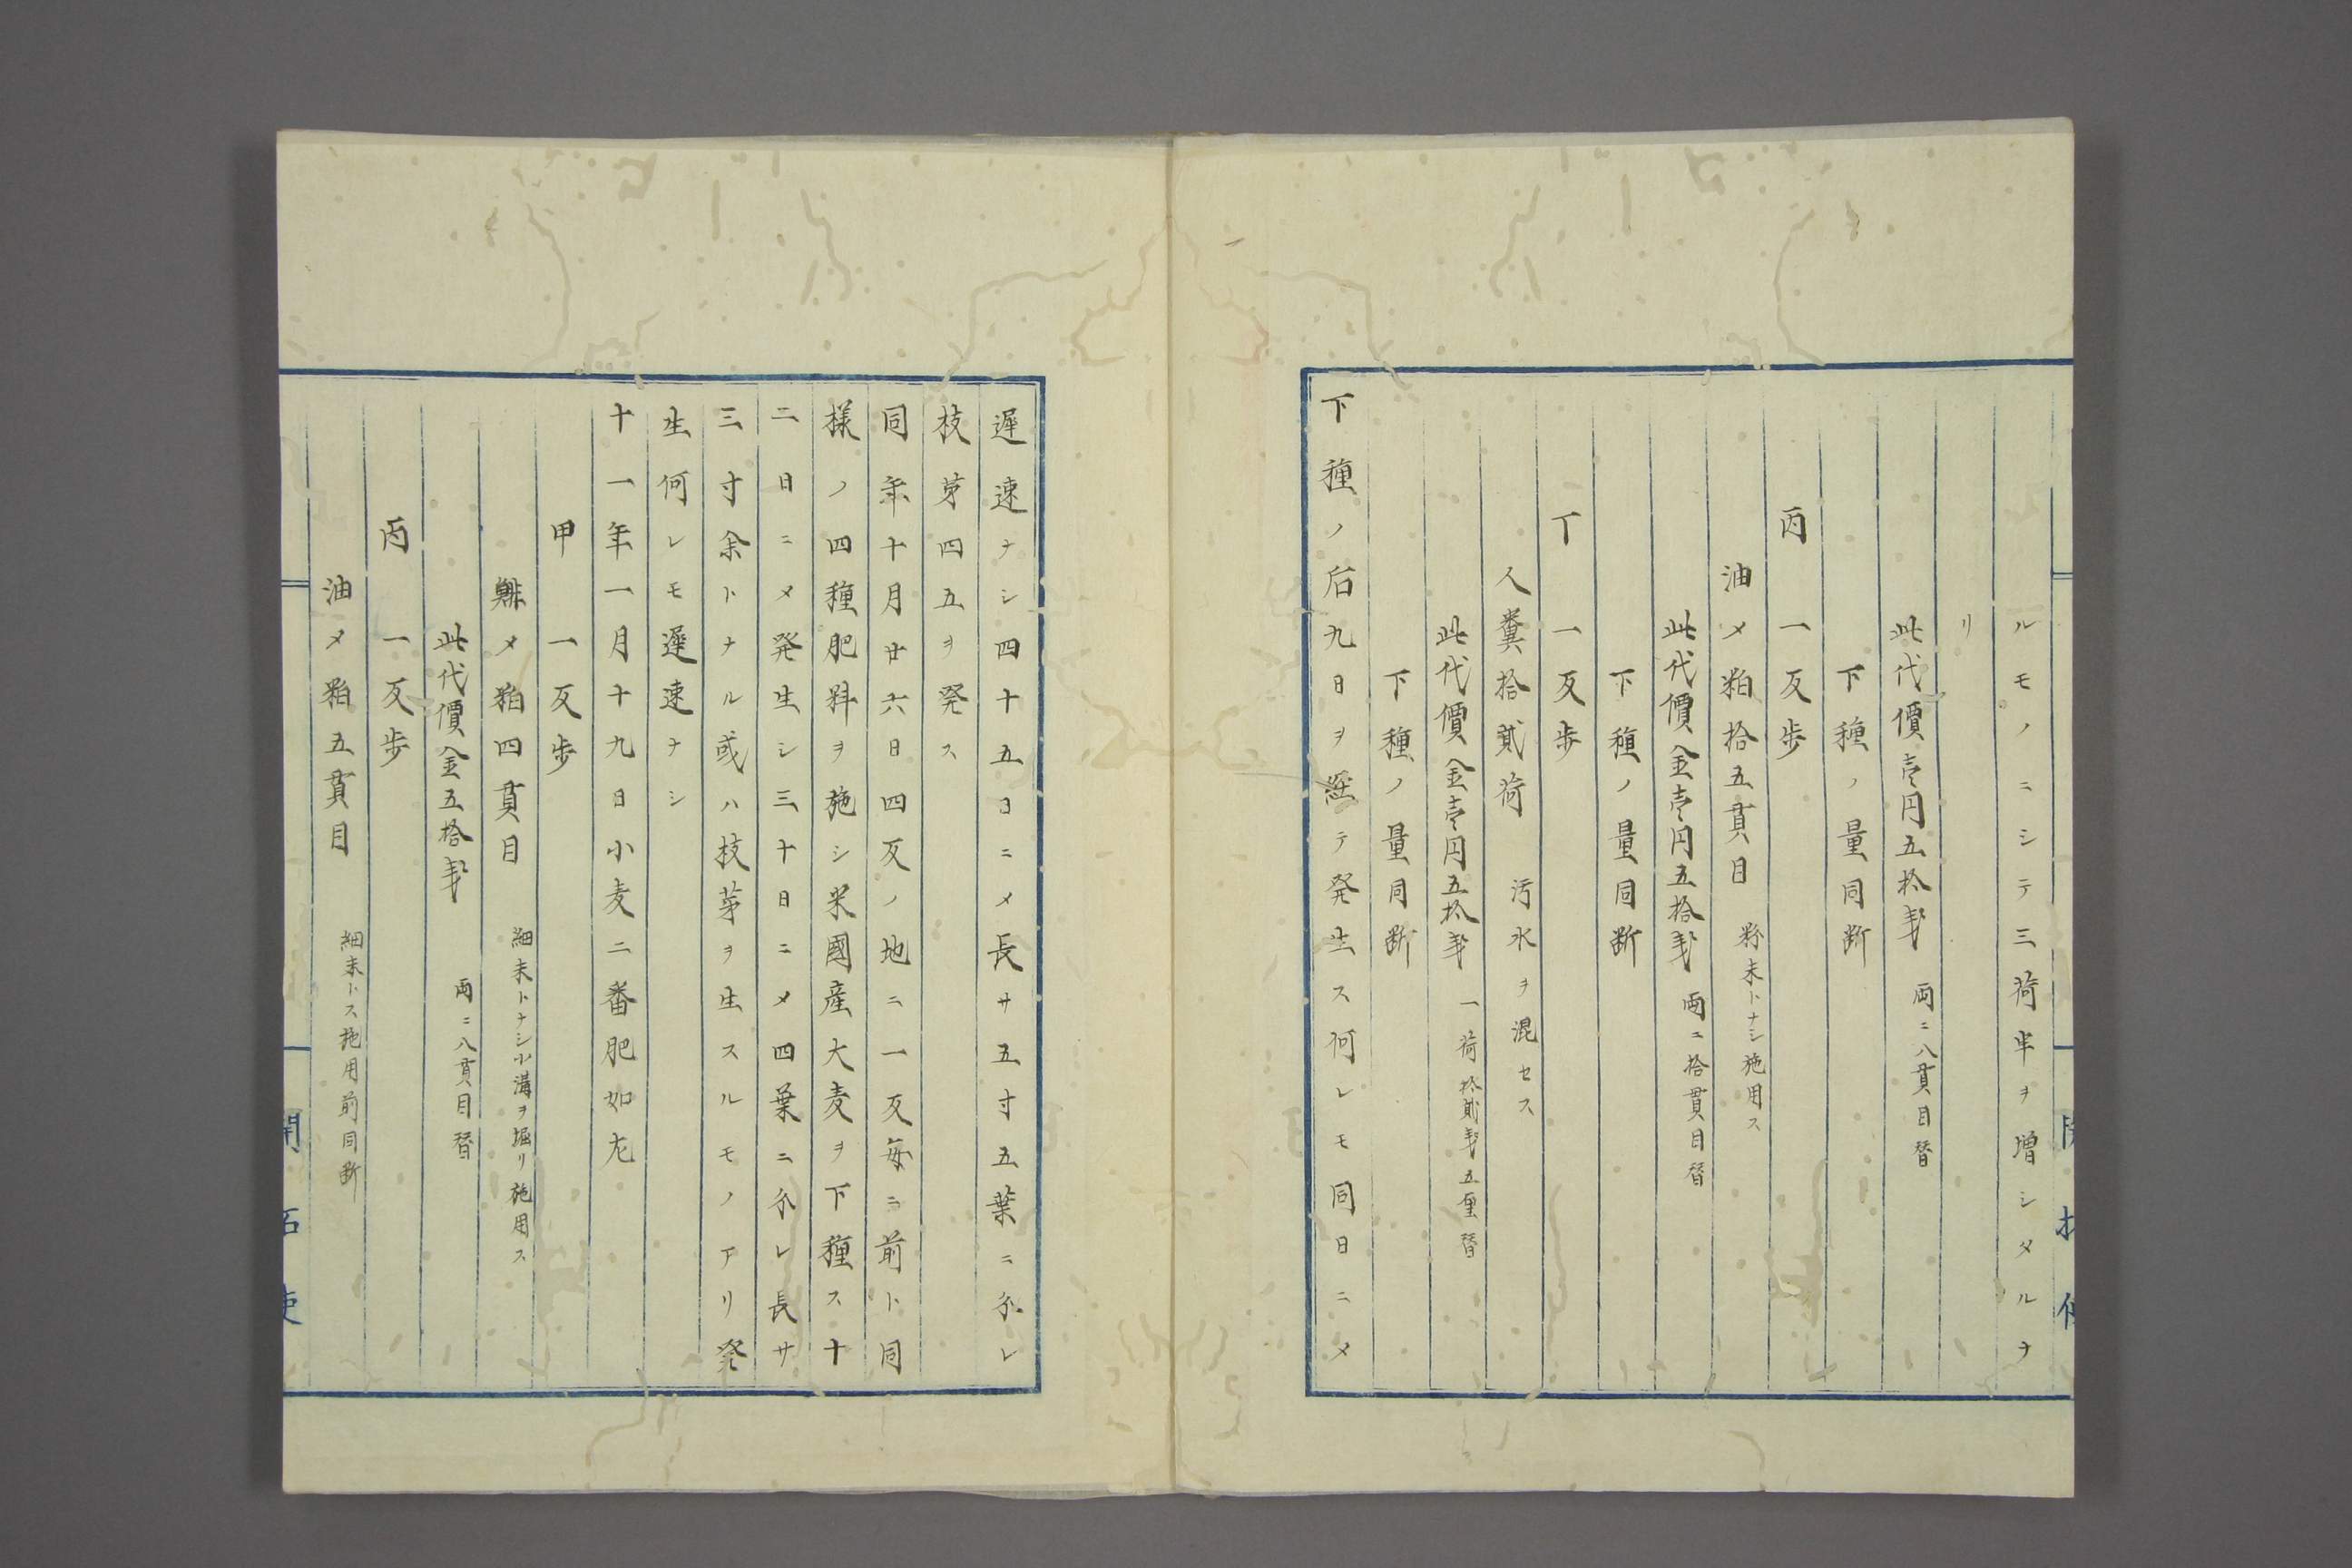 ルモノニシテ三荷半ヲ増シタルナ
リ
此代價壱円五拾銭 両ニ八貫目替
下種ノ量同断
丙 一反歩
油〆粕拾五貫目 粉末トナシ施用ス
此代價金壱円五拾銭 両ニ拾貫目替
下種ノ量同断
丁 一反歩
人糞拾貳荷 汚水ヲ混セス
此代價金壱円五拾銭 一荷拾貳銭五厘替
下種ノ量同断
下種ノ后九日ヲ経テ発生ス何レモ同日ニメ
遅速ナシ四十五日ニメ長サ五寸五葉ニ分レ
枝芽四五ヲ発ス
同年十月廿六日四反ノ地ニ一反毎ニ前ト同
様ノ四種肥料ヲ施シ米國産大麦ヲ下種ス十
二日ニメ発生シ三十日ニメ四葉ニ分レ長サ
三寸余トナル或ハ枝芽ヲ生スルモノアリ発
生何レモ遅速ナシ
十一年一月十九日小麦二番肥如左
甲 一反歩
鯡〆粕四貫目 細末トナシ小溝ヲ堀リ施用ス
此代價金五拾銭 両ニ八貫目替
丙 一反歩
油〆粕五貫目 細末トス施用前同断
開拓使